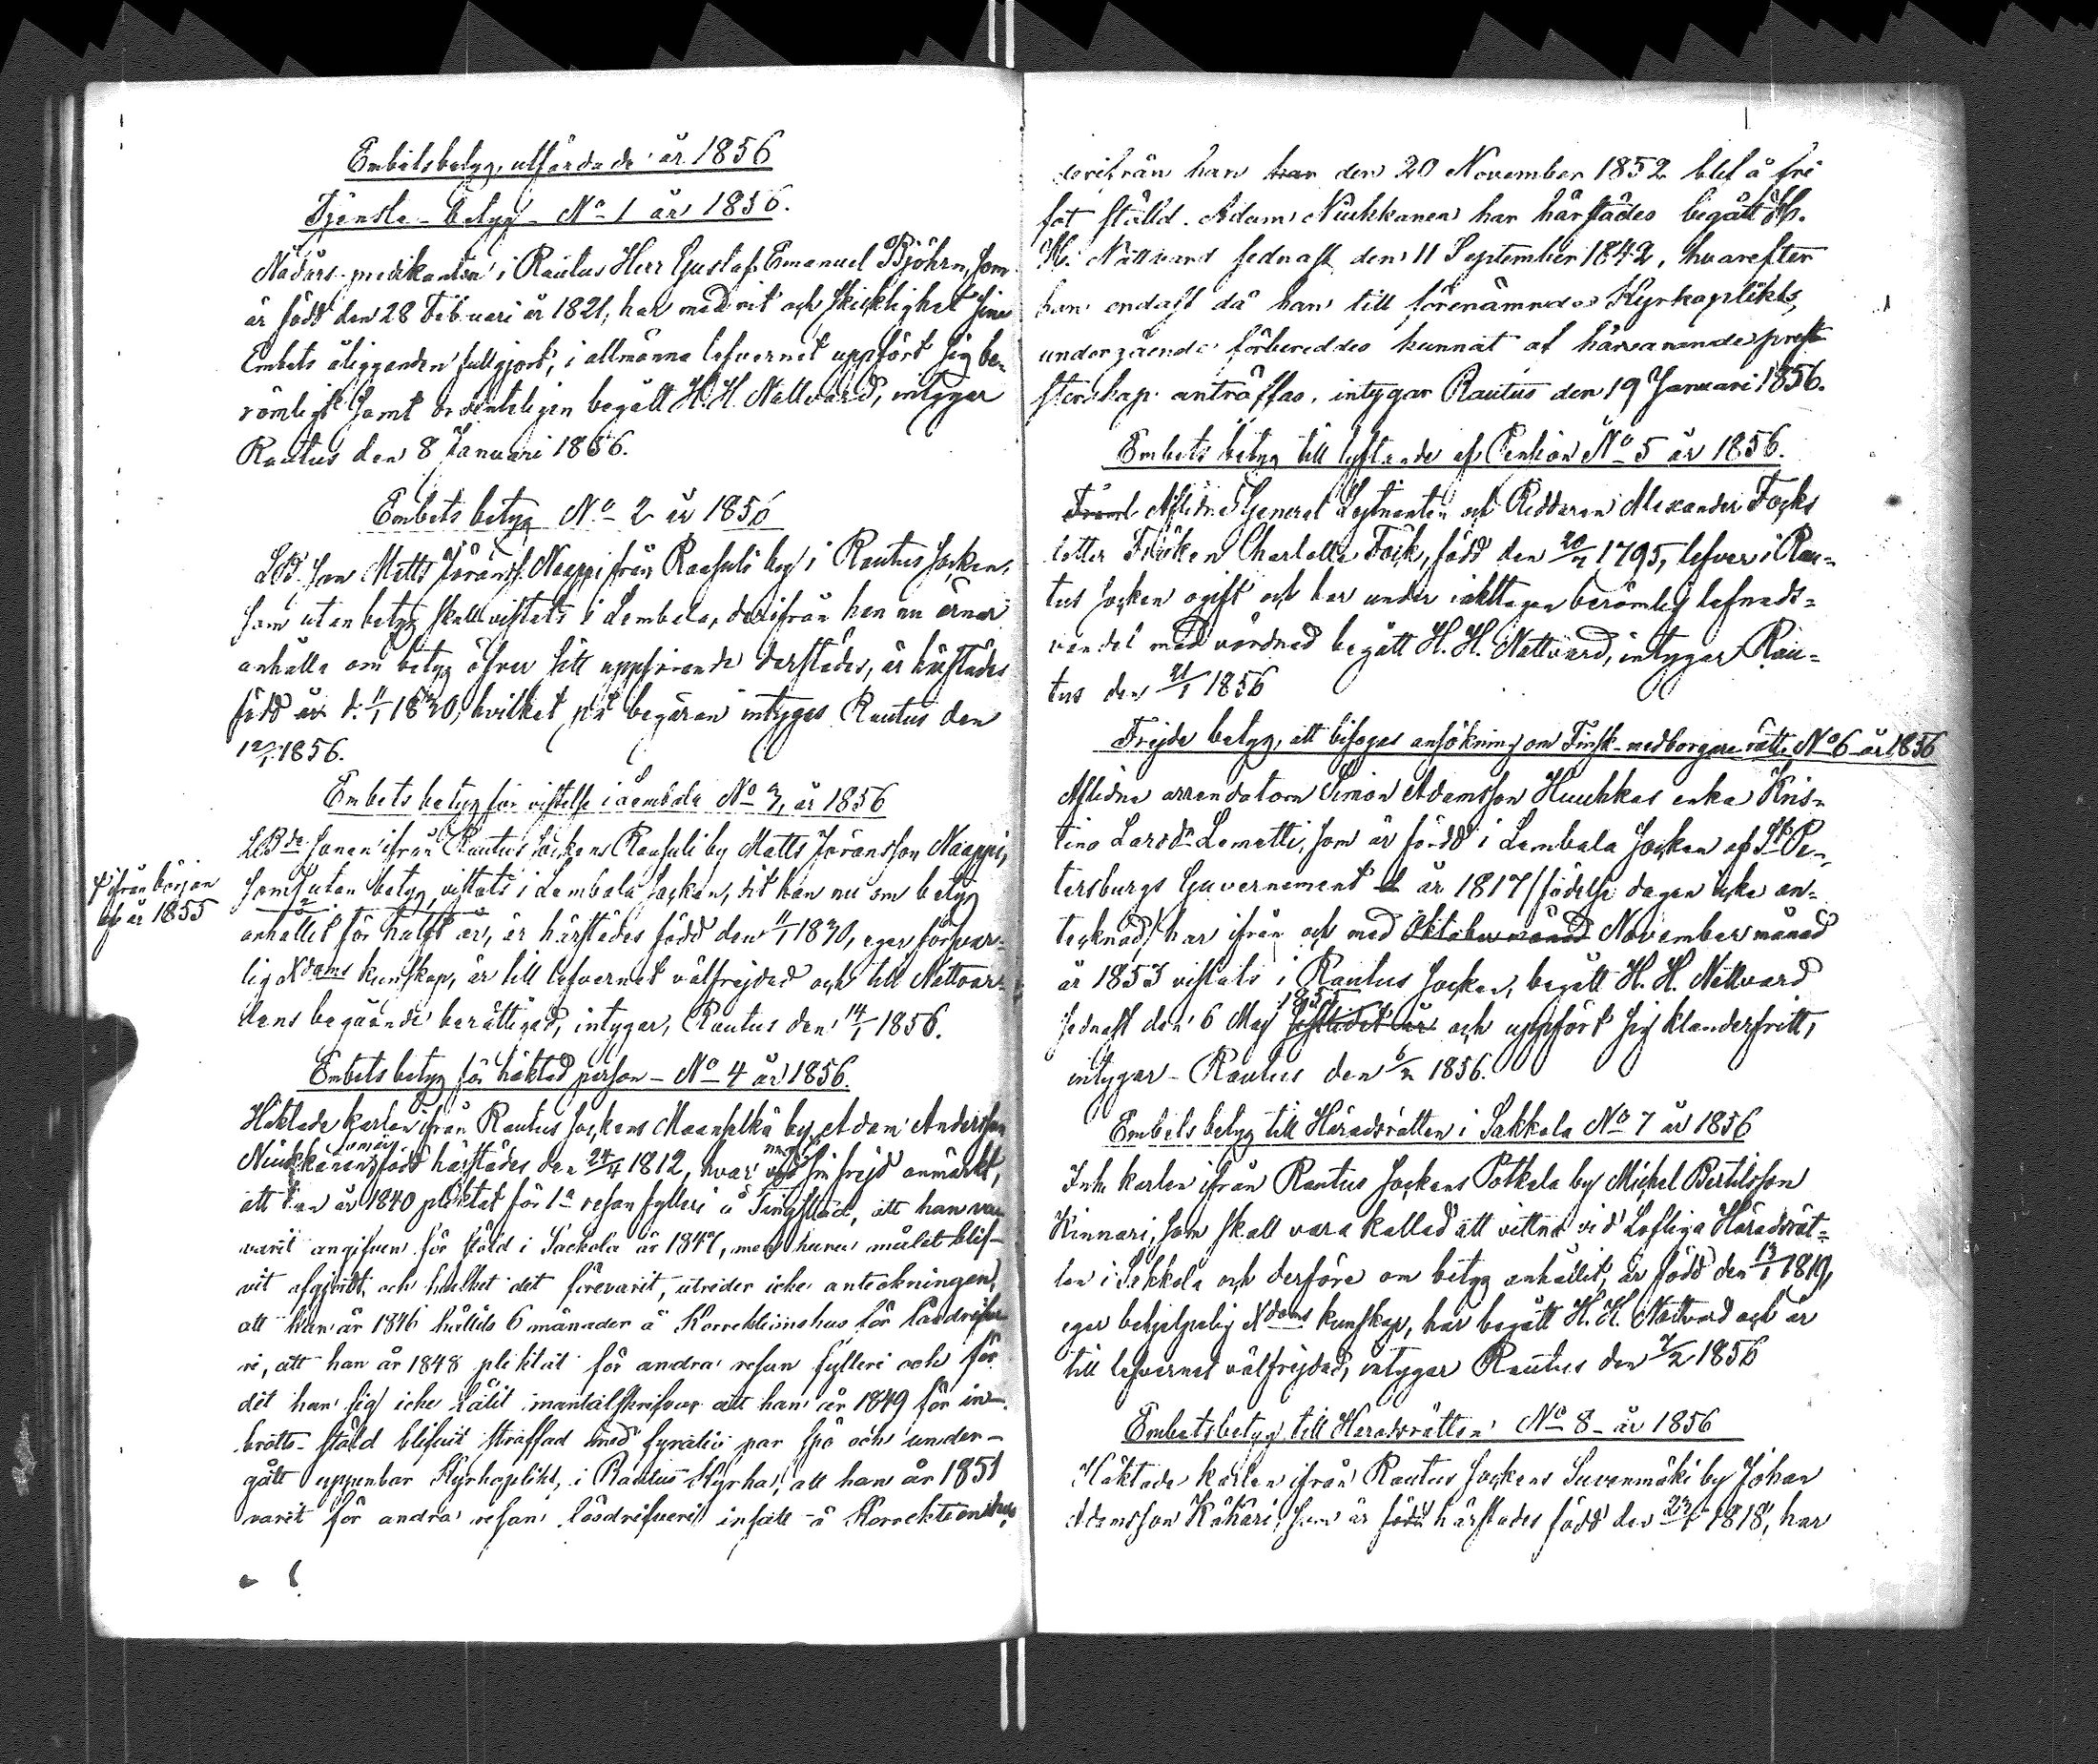 Embetsbetyg, utfärdade år 1856
Tjenste-betyg No 1 år 1856.
Nådårs-predikanten i Rautus Herr Gustaf Emanuel Björhn, som
är född den 28 Februari år 1821, har med nit och skicklighet sina
Embets åligganden fullgjort, i allmänna lefvernet uppfört sig be-
römligt samt ordenteligen begått H. H. Nattvard, intygar
Rautus den 8 Januari 1856.
Embets betyg No 2 år 1856
son Matts Jöranss. Naappi från Raasuli by i Rautus socken,
som utan betyg skall vistats i Lembala, derifrån han nu ärnar
anhålla om betyg öfver sitt uppförande derstädes, är härstädes
född år d. 11/1 1830, hvilket på begäran intygas Rautus den
12/1 1856.
Embets betyg för vistelse i Lembala No 3, år 1856
sonen ifrån Rautus sockens Raasuli by Matts Jöransson Naappi,
som utan betyg vistats i Lembala socken, dit han nu om betyg
ifrån början
af år 1855
anhållit för halft år, är härstädes född den 11/1 1830, eger försvar-
lig Xdoms kunskap, är till lefvernet välfrejdad och till Nattvar-
dens begående berättigad, intygar, Rautus den 14/1 1856.
Embets betyg för häktad person - No 4 år 1856.
Häktade karlen ifrån Rautus sockens Maanselkä by Adam Andersson
Niukkanen, som är född härstädes den 24/4 1812, hvar vid sin frejd anmärkt,
att han år 1840 pliktat för 1a resan fylleri å Tingsstad, att han
varit angifven för stöld i Sackola år 1847, men huru målet blif-
vit afgjordt, och hvilket det förevarit, utreder icke anteckningen,
att han år 1846 hållits 6 månader å Korrektionshus för lösdrifve-
ri, att han år 1848 pliktat för andra resan fylleri och för
det han sig icke låtit mantalskrifvas att han år 1849 för in-
brotts-stöld blifvit straffad med fyratio par spö och under-
gått uppenbar Kyrkoplikt, i Rautus Kyrka, att han år 1851
varit för andra resans lösdrifveri insatt å Korrektionshus,
derifrån han har den 20 November 1852 blef å fri
fot ställd. Adam Niukkanen har härstädes begått H.
H. Nattvard sednast den 11 September 1842, hvarefter
han endast då han till förenämndes Kyrkoplikts,
undergående förbereddes kunnat af härvarande pre-
sterskap anträffas, intygar Rautus den 19 Januari 1856.
Embets betyg till lyftande af Pension No 5 år 1856.
Framl Aflidne General Lojtnanten och Riddaren Alexander Focks
dotter Fröken Charlotta Fock, född den 20/2 1795, lefver i Rau-
tus socken ogift och har under iakttagen berömlig lefnads-
vandel med vördnad begått H. H. Nattvard, intygar Rau-
tus den 21/1 1856
Frejde betyg, att bifogas ansökning om Finsk medborgare rätt. No 6 år 1856
Aflidne arrendatorn Simon Adamsson Huuhkas enka Kris-
tina Larsdr Lematti, som är född i Lembala socken af St Pe-
tersburgs Guvernement år 1817 (födelse dagen icke an-
tecknad) har ifrån och med Oktober månad November månad
år 1853 vistats i Rautus socken, begått H. H. Nattvard
sednast den 6 Maj 1855 sistledet år och uppfört sig klanderfritt,
intygar Rautus den 5/2 1856.
Embets betyg till Häradsrätten i Sakkola No 7 år 1856
Inh. karlen ifrån Rautus sockens Potkela by Michel Bertilsson
Kinnari, som skall vara kallad att vittna vid Lofliga Häradsrät-
ten i Sakkola och derföre om betyg anhållit, är född den 13/1 1819,
eger behjelpelig Xdoms kunskap, har begått H. H. Nattvard och är
till lefvernet välfrejdad, intygar Rautus den 7/2 1856
Embetsbetyg till Häradsrätten No 8 - år 1856
Häktade karlen ifrån Rautus sockens Suvenmäki by Johan
Adamsson Kähäri, som är född härstädes född den 23/1 1818, har